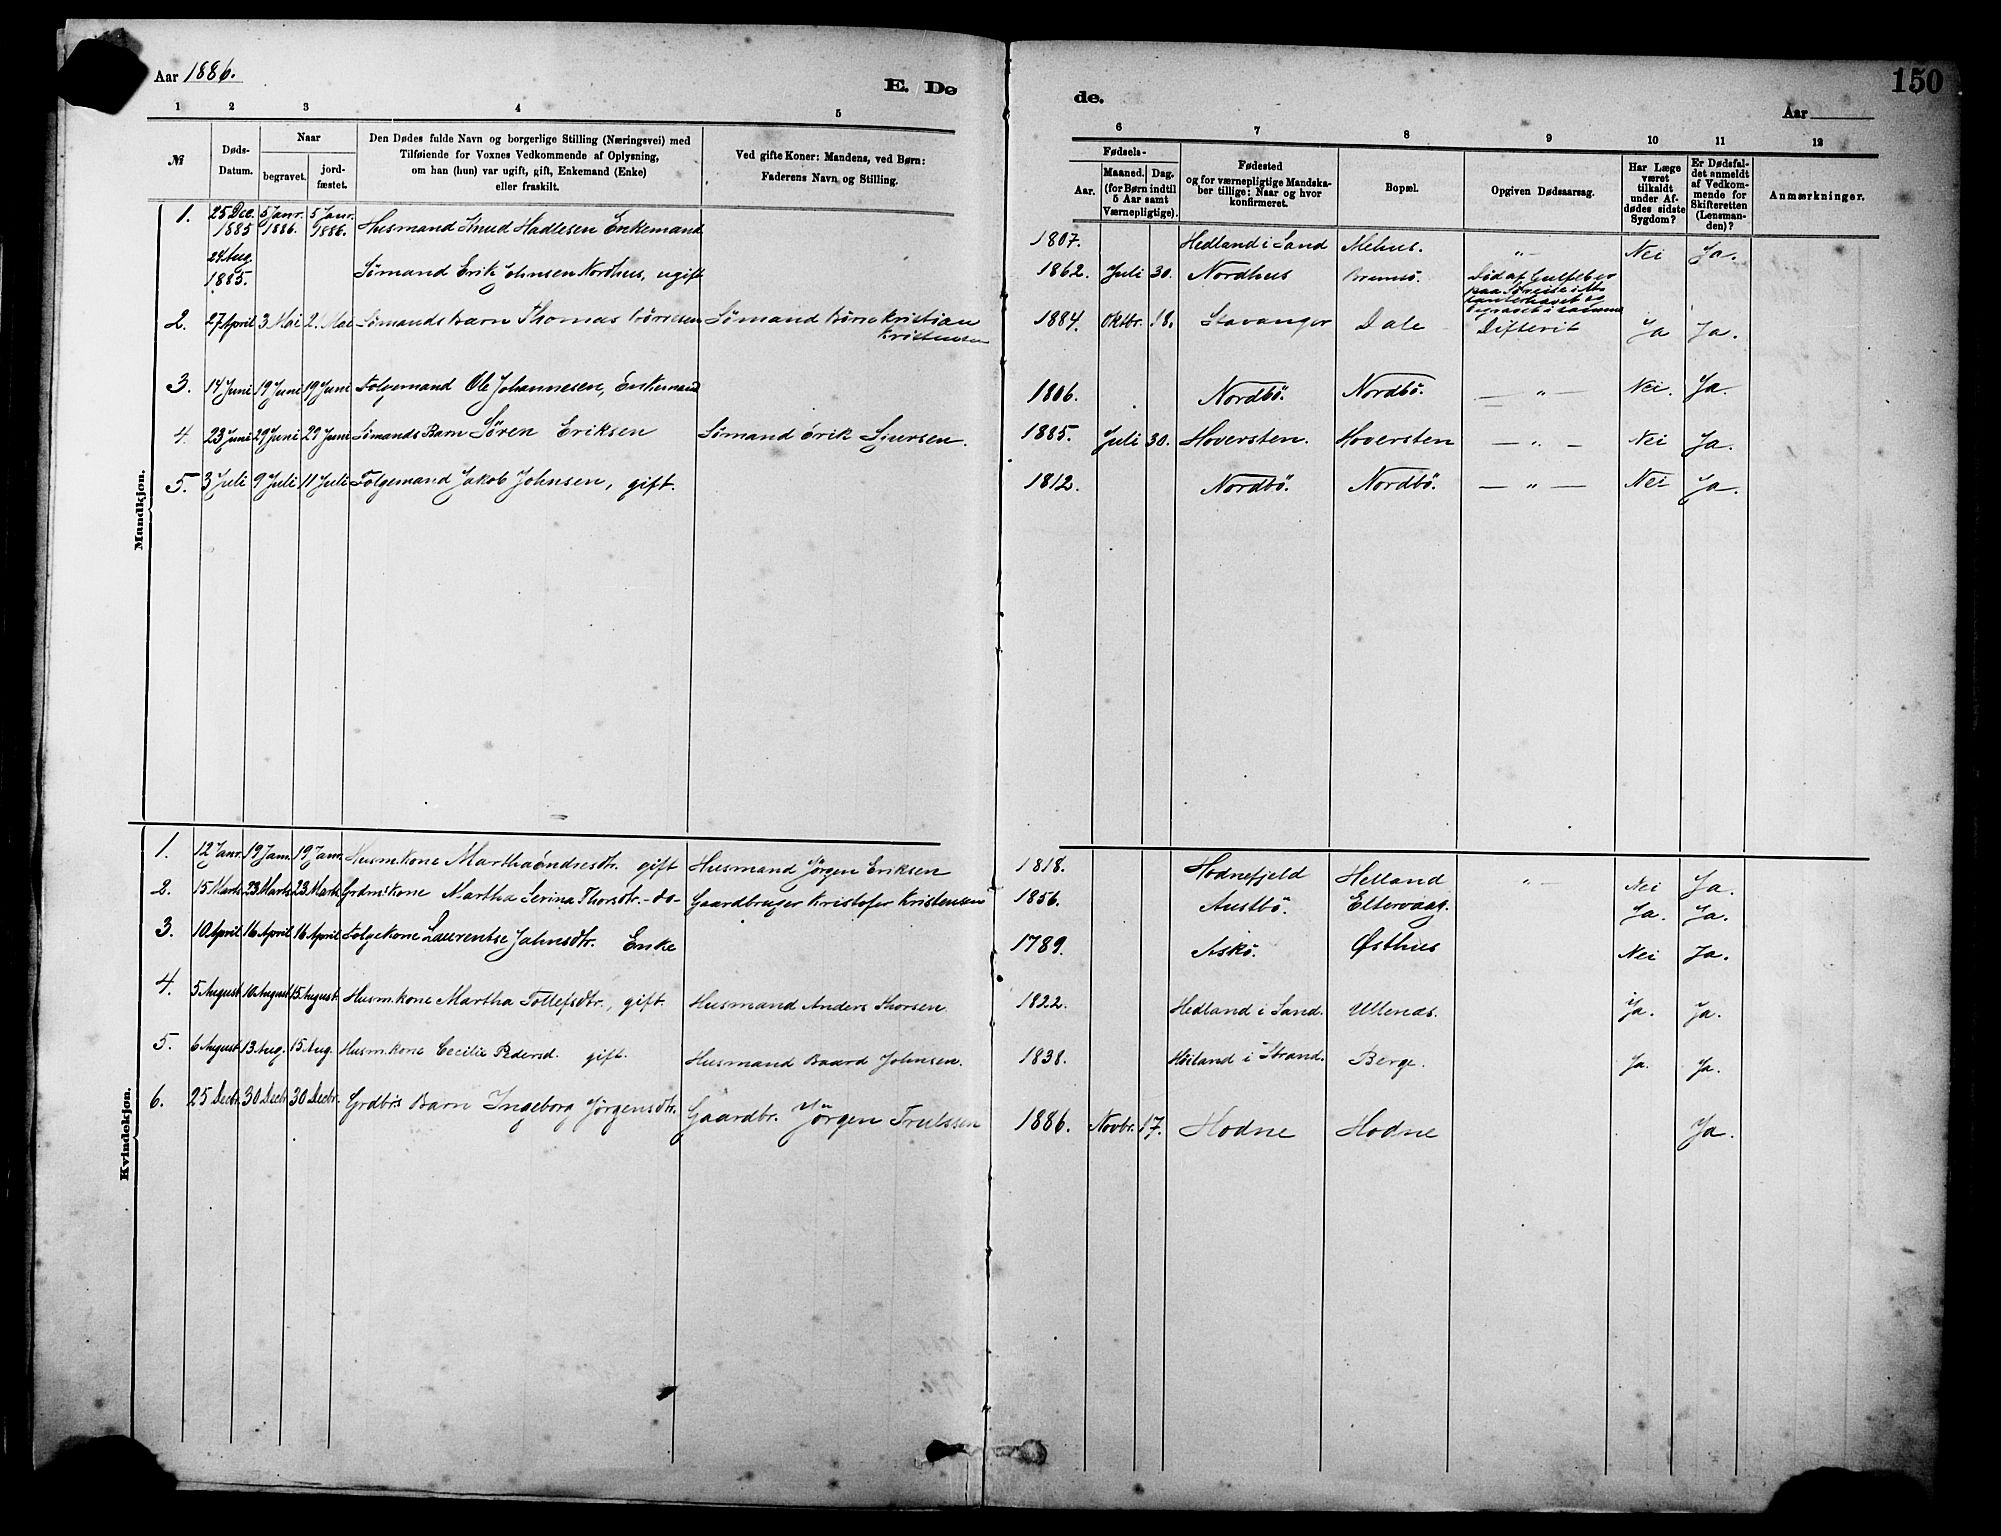 Aar 1886.
E. Dø
de.
150
Aar
1 2 3 4 5 6 7 8 9 10 11 12
№
Døds-
Datum.
Naar
begravet.
jord-
fæstet.
Den Dødes fulde Navn og borgerlige Stilling (Næringsvei) med
Tilføiende for Voxnes Vedkommende af Oplysning,
om han (hun) var ugift, gift, Enkemand (Enke)
eller fraskilt.
Ved gifte Koner: Mandens, ved Børn:
Faderens Navn og Stilling.
Fødsels-
Aar.
Maaned. Dag.
(for Børn indtil
5 Aar samt
Værnepligtige).
Fødested
og for værnepligtige Mandska-
ber tillige: Naar og hvor
konfirmeret.
Bopæl.
Opgiven Dødsaarsag.
Har Læge
været
tilkaldt
under Af-
dødes sidste
Sygdom?
Er Dødsfal-
det anmeldt
af Vedkom-
mende for
Skifteretten
(Lensman-
den)?
Anmærkninger.
Mandkjøn.
1. 25 Dec. 1885 5 Janr. 1886. 5 Janr. 1886. Husmand Knud Hadlesen Enkemand 1807. Hedland i Sand Mehus. " Nei Ja.
Aug. 1885. Sømand Erik Johnsen Nordhus, ugift 1862. Juli 30. Nordhus Død af
2. 27 April 3 Mai 2. Mai Sømands Barn Thomas Børresen Sømand Børre Kristian
Kristensen 1884. Oktbr. 18. Stavanger Dale Difterit Ja Ja.
3. 14 Juni 19 Juni 19 Juni Folgemand Ole Johannesen, Enkemand 1806. Nordbö. Nordbö. — " — Nei. Ja.
4. 23 Juni 29 Juni 29 Juni Sømands Barn Søren Eriksen Sømand Erik Sjursen. 1885. Juli 30. Hoversten. Hoversten — " — Nei Ja.
5. 3 Juli 9 Juli 11 Juli Folgemand Jakob Johnsen, gift. 1812. Nordbö. Nordbö. — " — Nei Ja.
Kvindekjøn.
1. 12 Janr. 19 Janr. 19 Janr. Husm.kone Martha Endresdtr. gift Husmand Jørgen Eriksen 1818. Hodnefjeld Helland " — Nei Ja.
2. 15 Marts 23 Marts 23 Marts Grdm.kone Martha Serina Thorsdtr. - do - Gaardbruger Kristofer Kristensen 1856. Austbö. Eltervaag. Ja. Ja.
3. 10 April 16 April 16 April Folgekone Laurentse Johnsdtr. Enke 1789. Askö. Østhus Nei Ja.
4. 5 August 10 August 15 August. Husm.kone Martha Tollefsdtr., gift. Husmand Anders Thorsen 1822. Hedland i Sand. Ullenæs. Ja. Ja.
5. 6 August 13 Aug. 15 Aug. Husm.kone Cecilie Pedersd. gift. Husmand Baard Johnsen. 1838. Høiland i Strand. Berge. Ja. Ja.
6. 25 Decbr. 30 Decbr. 30 Decbr. Grdbr's Barn Ingeborg Jørgensdtr. Gaardbr. Jørgen Trulssen 1886. Novbr. 17. Hodne Hodne Ja.